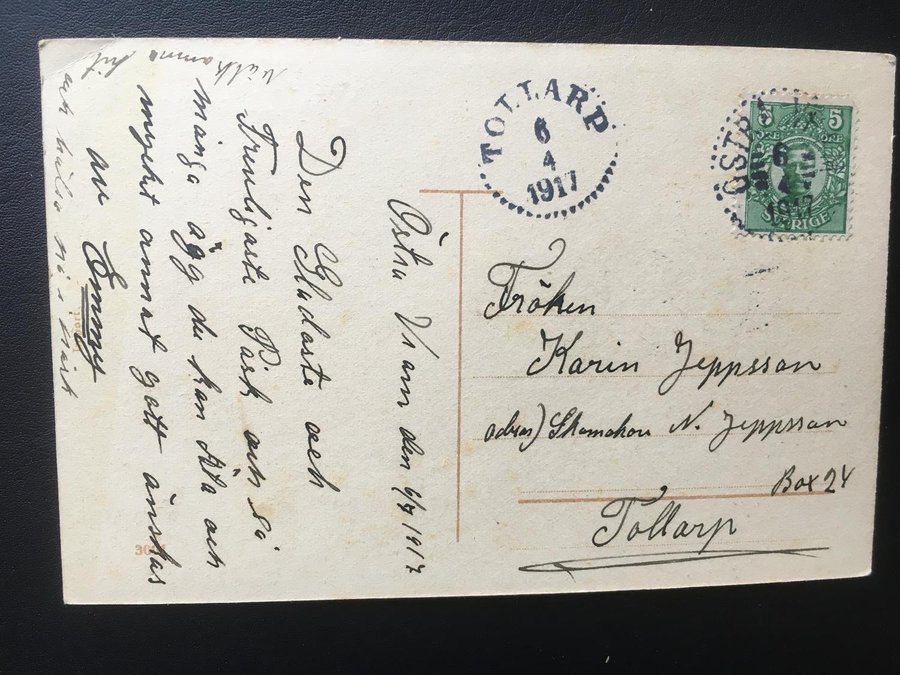 TOLLARP
6
4
1917
5 5
ÖRE ÖRE
SVERIGE
ÖSTRA
6
4
1917
Östra Vram den 6/4 1917
Den Gladaste och
Trevligaste Påsk och så
många ägg du kan äta och
mycket annat gott önskas
av Emmy
hit
och hälsa
Fröken
Karin Jeppsson
adres) N. Jeppsson
Box 24
Tollarp